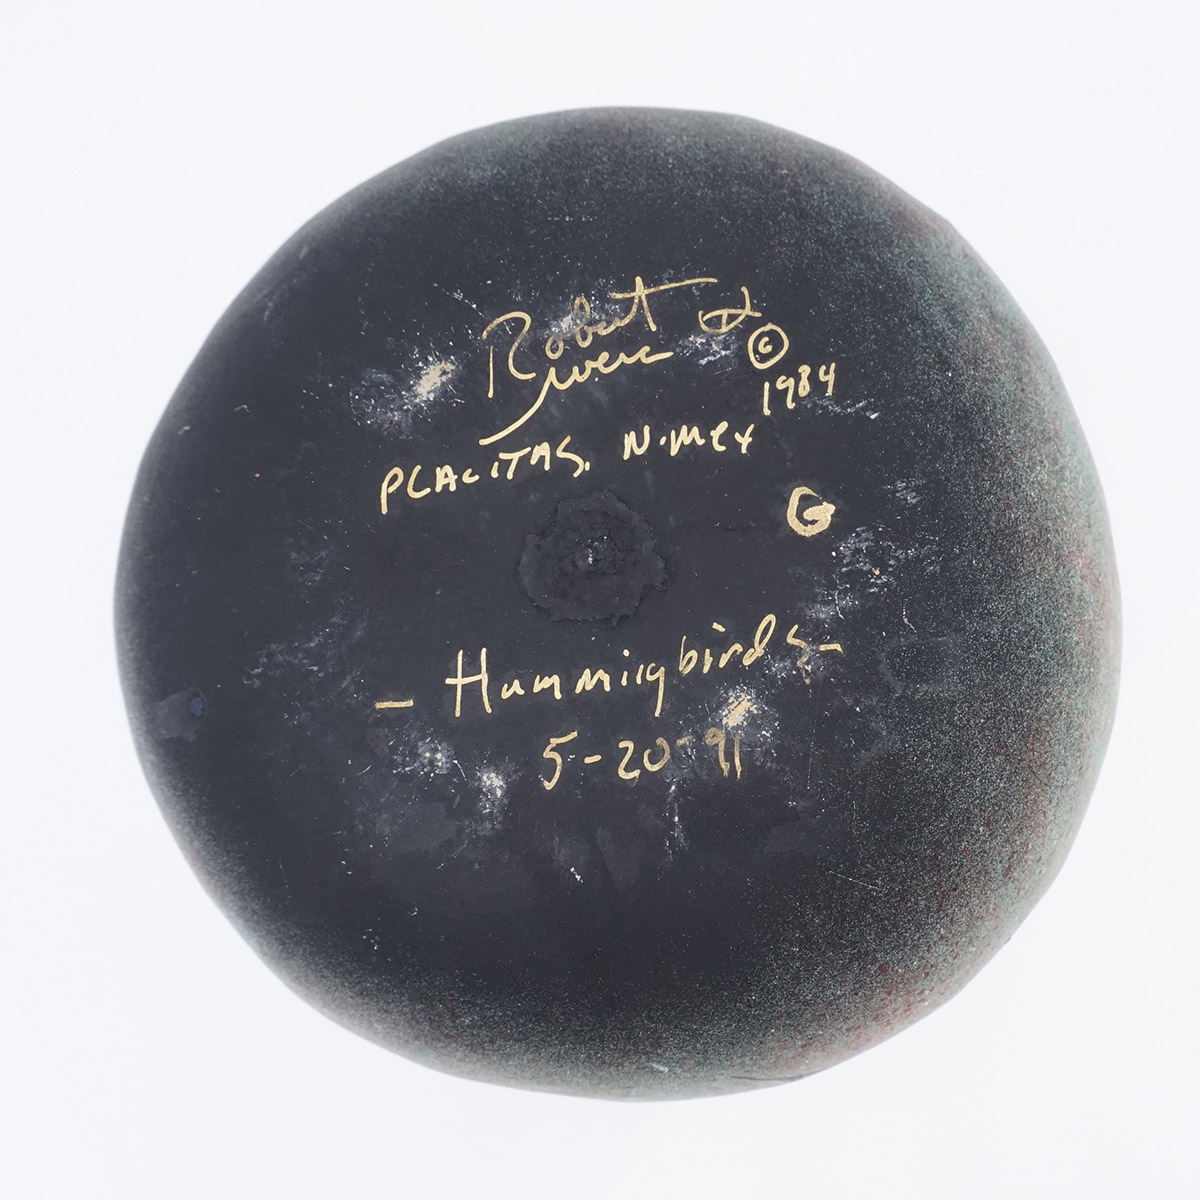 Robert
Rivera
© 1984
PLACITAS, N.Mex
G
- Hummingbirds -
5-20-91